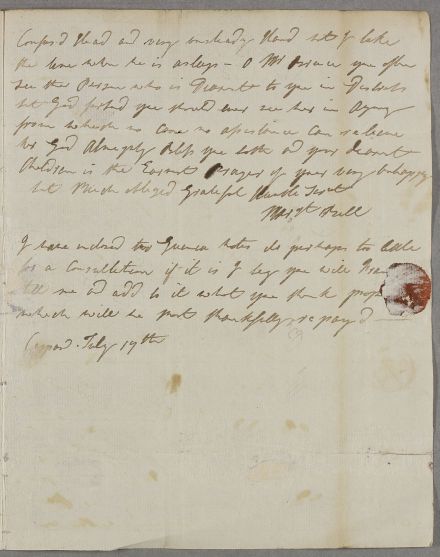 Confus'd Head and very unsteady Hand but I take
the time when he is asleep - O Mr I assure you often
see the Person who is Dearest to you in Distress
but God forbid you should ever see her in Agony
from which no care no assistance can relieve
her God Almighty Bless you both and your dearest
Children is the Earnest Prayer of your very unhappy
but Much obliged Grateful Humble Servt
Margt Bull
I have inclosed two Guinea Notes its perhaps to little
for a Consultation if it is I beg you will
tell me and add to it what you think prope
which will be most thankfully repay'd
July 19th